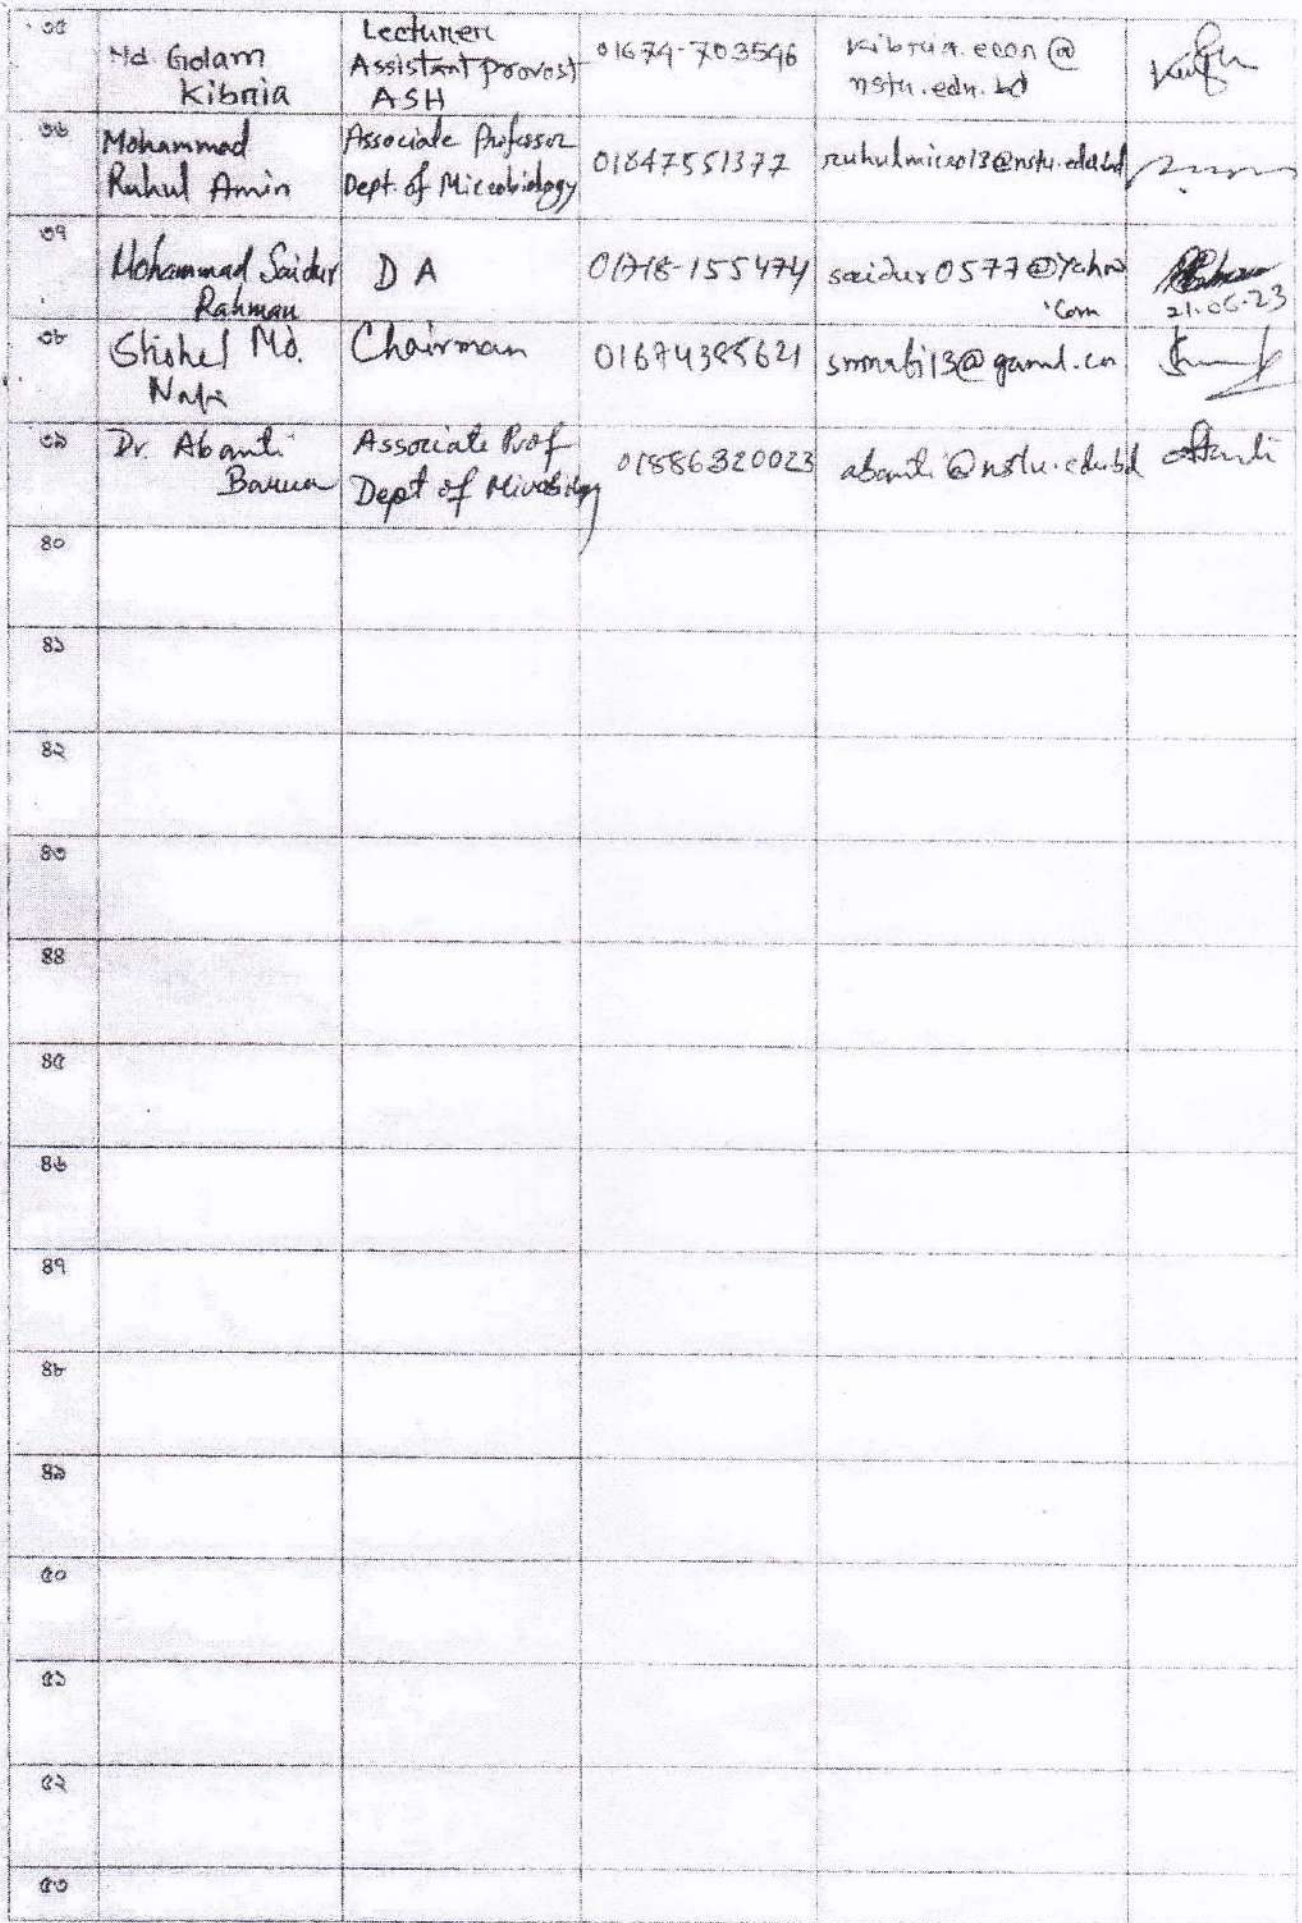 ৩৫
Md. Golam
Kibria
Lecturer
Assistant provost
ASH
01674-703546
kibria.econ@
nstu.edu.bd
৩৬
Mohammad
Ruhul Amin
Associate Professor
Dept. of Microbiology
01847551377
ruhulmicro13@nstu.edu.bd
৩৭
Mohammad Saidur
Rahman
D A
01718-155474
saidur0577@Yahoo
.Com
21.06.23
৩৮
Shohel Md.
Nafi
Chairman
01674385621
৩৯
Dr. Abanti
Barua
Associate Prof
Dept of Microbiology
01886320023
abanti@nstu.edu.bd
৪০
৪১
৪২
৪৩
৪৪
৪৫
৪৬
৪৭
৪৮
৪৯
৫০
৫১
৫২
৫৩